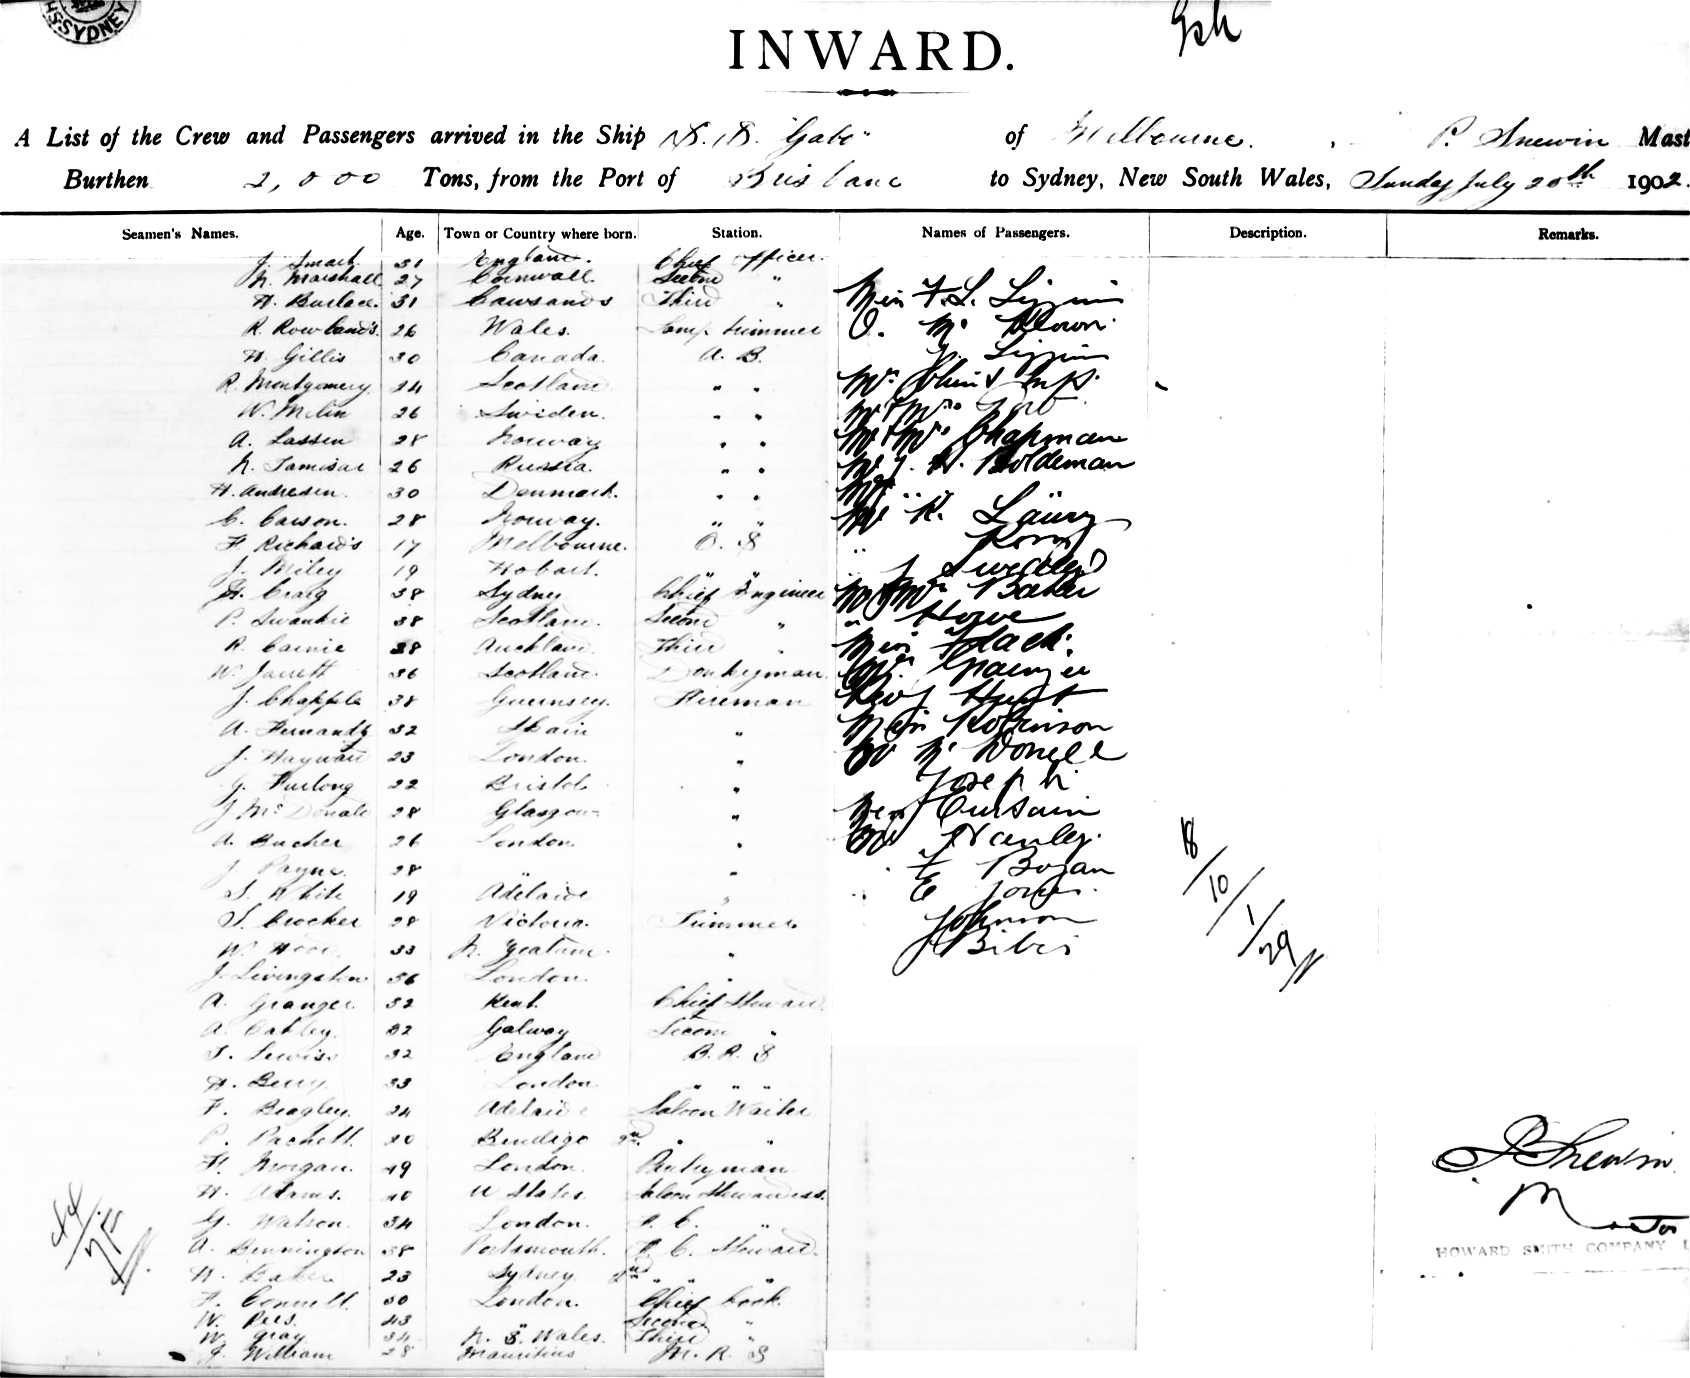 H.S. SYDNEY
INWARD.
A List of the Crew and Passengers arrived in the Ship S.S. "Gabo" of Melbourne. P. Snewin Mast
Burthen 2,000 Tons, from the Port of Brisbane to Sydney, New South Wales, Sunday July 20th 1902.
Seamen's Names. Age. Town or Country where born. Station. Names of Passengers. Description. Remarks.
J. Smart 31 England. Chief Officer.
N. Marshall 27 Cornwall Second "
H. Burlace 31 Cawsands Third " Miss F. L.
R. Rowlands. 26 Wales. Lamp Trimmer O. Mc
H. Gillis 30 Canada. A. B.
R. Montgomery 24 Scotland " " Mr
W. Melin 26 Sweden. " " Mr & Mrs
A. Lassen 28 Norway " " Mr & Mrs Chapman
N. Tamisar 26 Russia. " " Boldeman
H. Andresen. 30 Denmark. " "
C. Carson. 28 Norway. " " Mr K.
F. Richards 17 Melbourne. O. S
J. Miley 19 Hobart. " "
H. Craig 38 Sydney Chief Engineer Mr & Mrs Baker
P. Swankie 38 Scotland. Second " " Howe
R. Cairnie 28 Auckland. Third " Miss Flack.
W. Jarrett 36 Scotland. Donkeyman Grainger
J. Chapple 38 Guernsey. Fireman Rev J Hunt
A. Fernandz 32 Spain " Miss Robinson
J. Hayward 23 London. " Mr Mc Donell
G. Furlong 22 Bristol. " Joseph
J. McDonald 28 Glasgow "
A. Bucher 26 London. " Mr Hanley.
J Payne. 28 " " Bogan
S. White 19 Adelaide " E Jones.
S. Crocker 28 Victoria. Trimmer. Johnson
W. Wood 33 N. Zealand. "
J. Livingston 36 London. "
A. Granger 32 Kent. Chief Steward.
A. Oakley. 32 Galway Second "
S. Lewis. 32 England B. R. S
H. Berry 33 London. " " "
F. Beagley. 24 Adelaide Saloon Waiter
P. Patchell. 20 Bendigo 2nd " "
H. Morgan. 19 London. Pantryman
H. Adams. 40 U States. Saloon Stewardess.
G. Watson. 34 London. F. C. "
A. Bennington 38 Portsmouth. F. C. Steward.
H. Baker 23 Sydney 2nd " " "
F. Connell. 30 London. Chief Cook.
W. Rees. 43 " Second "
W. Gray 34 N. S. Wales. Third "
J. William 28 Mauritius M. R. S
18/10/1/29
44/75
P Snewin
Master
HOWARD SMITH COMPANY L